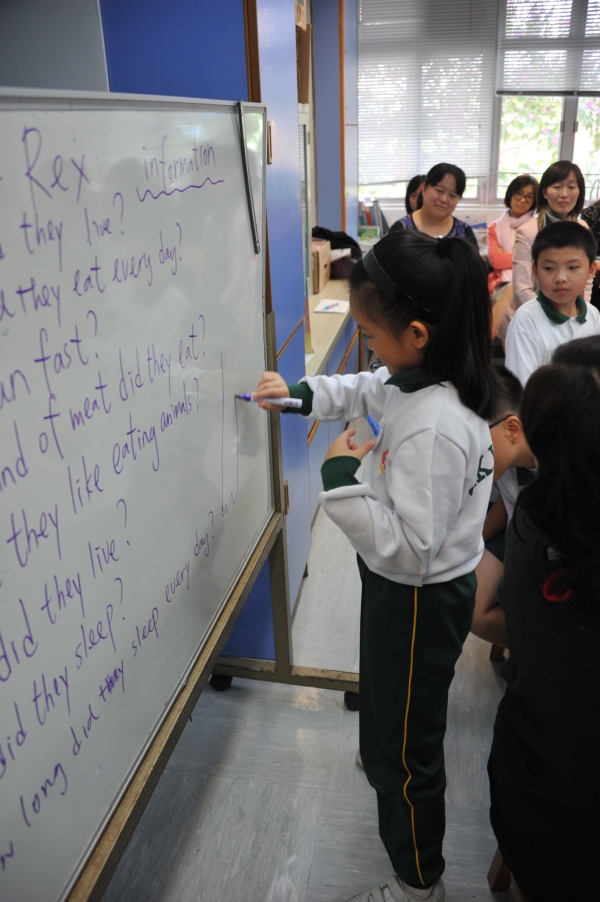 Rex information
they live?
they eat every day?
fast?
of meat did they eat?
they like eating animals?
did they live?
did they sleep?
long did they sleep every day?